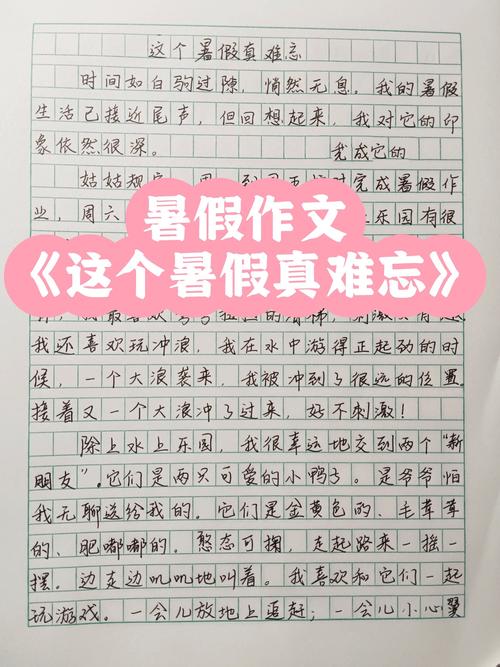 这个暑假真难忘
时间如白驹过隙，悄然无息。我的暑假
生活已接近尾声，但回想起来，我对它的印
象依然很深。
完成它的
姑姑规定
完成暑假作
业，周六
乐园有很
暑假作文
《这个暑假真难忘》
我还喜欢玩冲浪，我在水中游得正起劲的时
候，一个大浪袭来，我被冲到了很远的位置。
接着又一个大浪冲了过来，好不刺激！
除上水上乐园，我很幸运地交到两个“新
朋友”。它们是两只可爱的小鸭子。是爷爷怕
我无聊送给我的。它们是金黄色的、毛茸茸
的、肥嘟嘟的。憨态可掬，走起路来一摇一
摆。边走边叽叽地叫着。我喜欢和它们一起
玩游戏。一会儿放地上追赶；一会儿小心翼